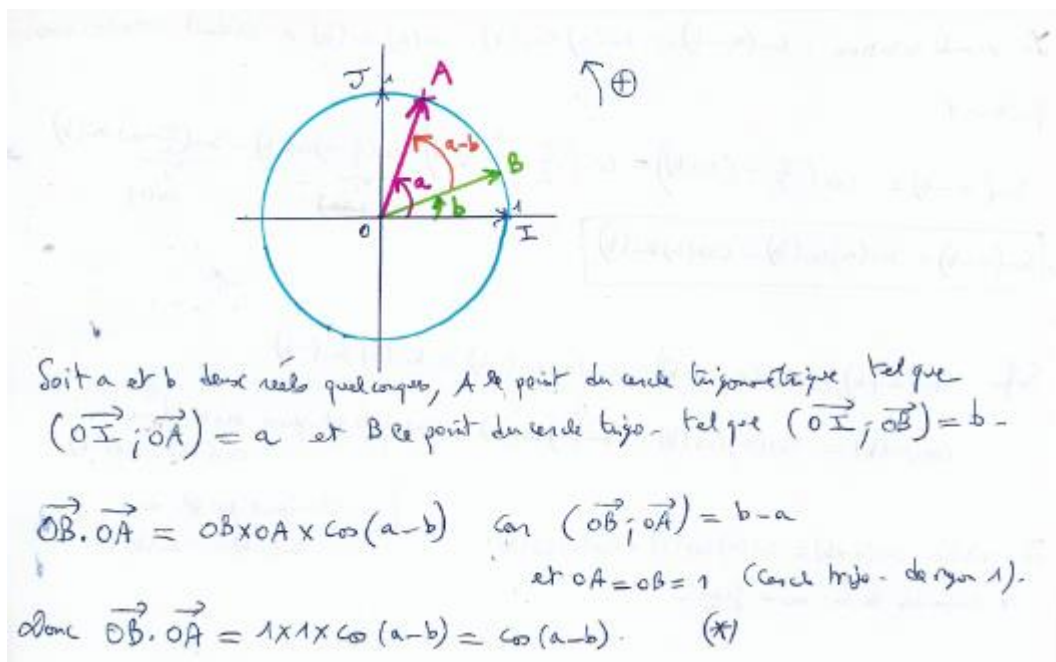 J 1 A ⊕
a-b
B
a
b
O 1
I
Soit a et b deux réels quelconques, A le point du cercle trigonométrique tel que
(OI→ ; OA→) = a et B le point du cercle trigo. tel que (OI→ ; OB→) = b.
OB→. OA→ = OB×OA×cos(a-b) car (OB→ ; OA→) = b-a
et OA=OB=1 (cercle trigo. de rayon 1).
Donc OB→. OA→ = 1×1×cos(a-b) = cos(a-b). (*)